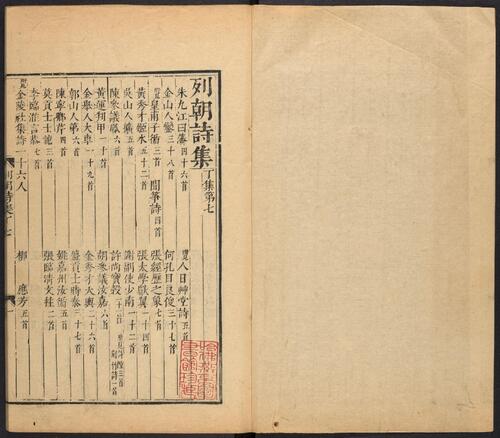 列朝詩集丁集第七
朱九江曰藩四十六首
覽人日艸堂詩五首
金山人鑾三十八首
何孔目良俊三十七首
附見皇甫子循三首 聞箏詩四首
張經歷之象七首
黃秀才姬水五十二首
張太學獻翼一十四首
吳山人擴五首
謝副使少南一十二首
陳參議鳳六首
許尚寶穀二十二首
黃運判甲一十首
胡參議汝嘉六首
金舉人大車一十九首
金秀才大輿二十六首
郭山人第六首
盛貢士時泰三十七首
陳寧鄉芹四首
姚嘉州汝循五首
莫貢士士龍三首
張臨清文柱二首
李臨淮言恭七首
附見金陵社集詩一十六人
柳應芳五首
列朝詩集丁七
一